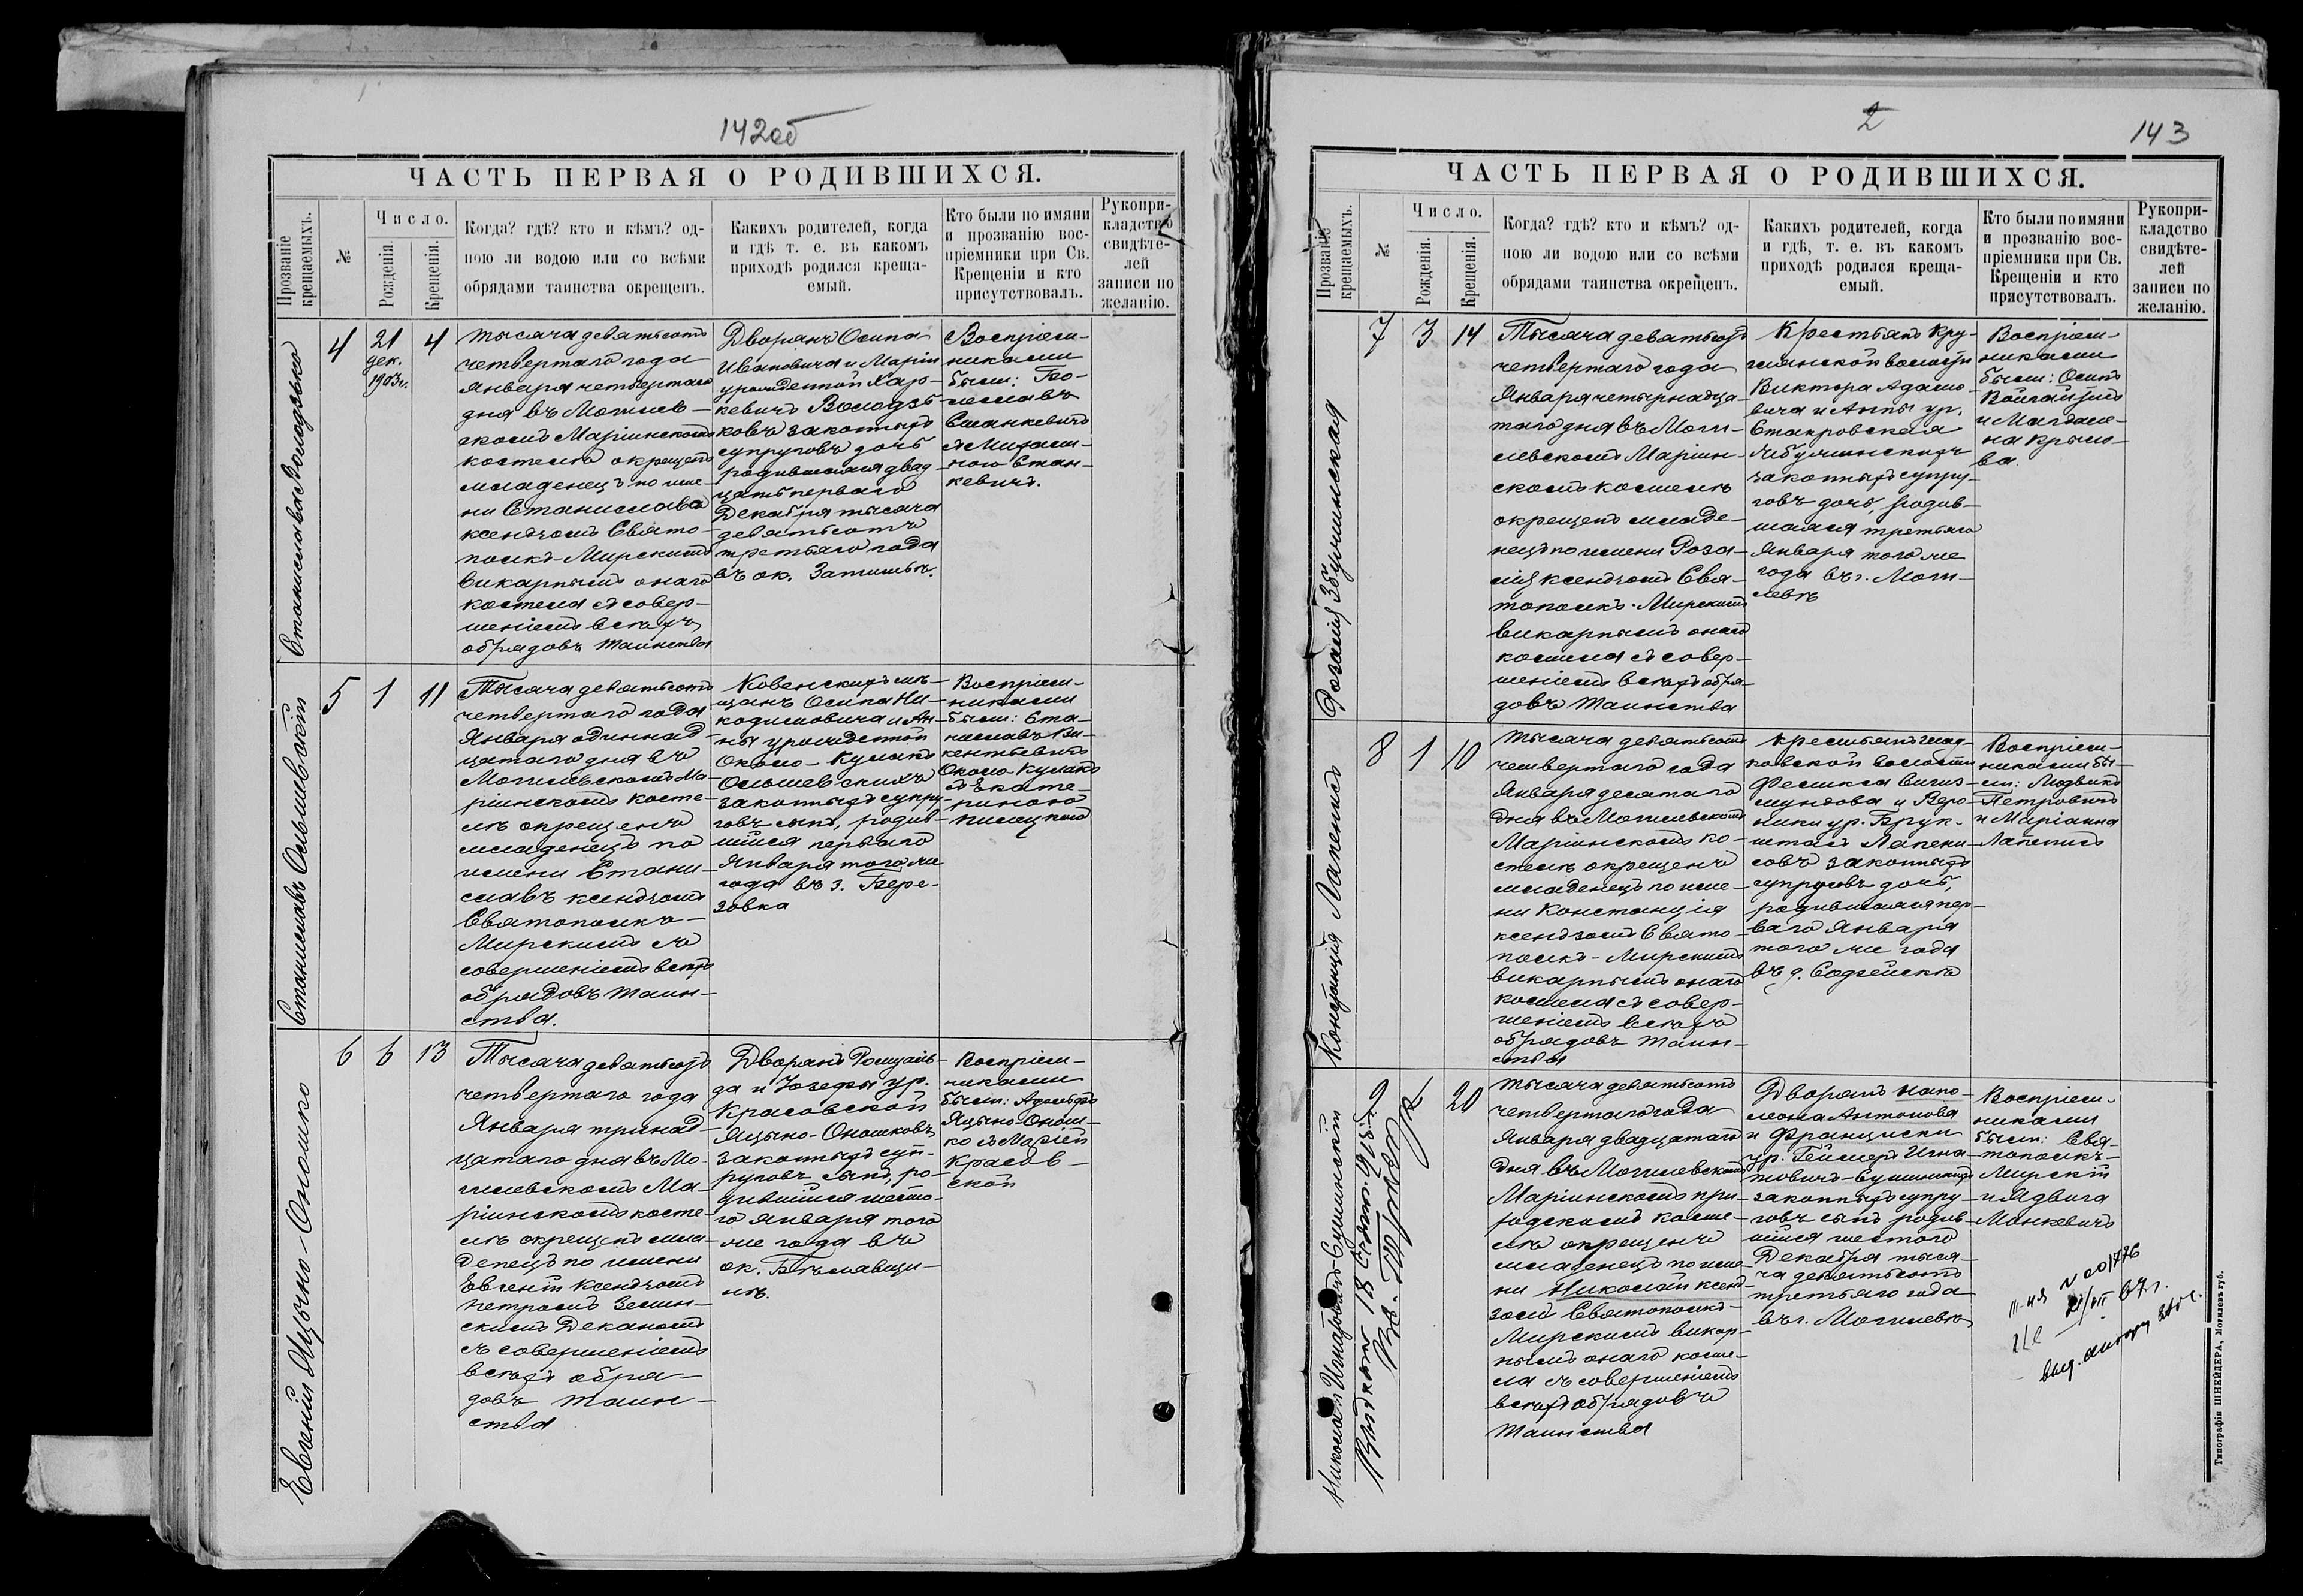 142об
ЧАСТЬ ПЕРВАЯ О РОДИВШИХСЯ.
Прозваніе крещаемыхъ.
№
Число.
Рожденія.
Крещенія.
Когда? гдѣ? кто и кѣмъ? од-
ною ли водою или со всѣми
обрядами таинства окрещенъ.
Какихъ родителей, когда
и гдѣ т. е. въ какомъ
приходѣ родился креща-
емый.
Кто были по имяни
и прозванію вос-
пріемники при Св.
Крещеніи и кто
присутствовалъ.
Рукопри-
кладство
свидѣте-
лей
записи по
желанію.
Станислава Володзько
4
21
дек.
1903 г.
4
Тысяча девятьсотъ
четвертаго года
Января четвертаго
дня въ Могилев-
скомъ Маріинскомъ
костелѣ окрещенъ
младенецъ по име-
ни Станислава
ксендзомъ Свято-
полкъ-Мирскимъ
викарнымъ онаго
костела съ совер-
шеніемъ всѣхъ
обрядовъ таинства
Дворянъ Осипа
Ивановича и Маріи
урожденной Хар-
кевичъ Володзь-
ковъ законныхъ
супруговъ дочь
родившаяся двад-
цать перваго
Декабря тысяча
девятьсотъ
третьяго года
въ ок. Затишье.
Воспріем-
никами
были: Бо-
леславъ
Станкевичъ
съ
Стан-
кевичъ.
Станиславъ Ольшевскій
5
1
11
Тысяча девятьсотъ
четвертаго года
Января одиннад-
цатаго дня въ
Могилевскомъ Ма-
ріинскомъ косте-
лѣ окрещенъ
младенецъ по
имени Стани-
славъ ксендзомъ
Святополкъ-
Мирскимъ съ
совершеніемъ всѣхъ
обрядовъ таин-
ства.
Ковенскихъ мѣ-
щанъ Осипа Ни-
кодимовича и Ан-
ны урожденной
Около-Кулакъ
Ольшевскихъ
законныхъ супру-
говъ сынъ, родив-
шійся перваго
Января того же
года въ з. Бере-
зовка
Воспріем-
никами
были: Ста-
ниславъ Ви-
кентьевичъ
Около-Кулакъ
съ Екате-
риною
Евгеній Яцыно-Оношко
6
6
13
Тысяча девятьсотъ
четвертаго года
Января тринад-
цатаго дня въ Мо-
гилевскомъ Ма-
ріинскомъ косте-
лѣ окрещенъ мла-
денецъ по имени
Евгеній ксендзомъ
Петромъ Зелин-
скимъ Деканомъ
съ совершеніемъ
всѣхъ обря-
довъ таин-
ства
Дворянъ Ромуаль-
да и Юзефы ур.
Красовской
Яцыно-Оношковъ
законныхъ суп-
руговъ сынъ, ро-
дившійся шесто-
го Января того
же года въ
ок. Бѣлявщи-
нѣ.
Воспріем-
никами
были: Адольфъ
Яцыно-Онош-
ко съ Маріей
Красов-
ской
2
143
ЧАСТЬ ПЕРВАЯ О РОДИВШИХСЯ.
Прозваніе крещаемыхъ.
№
Число.
Рожденія.
Крещенія.
Когда? гдѣ? кто и кѣмъ? од-
ною ли водою или со всѣми
обрядами таинства окрещенъ.
Какихъ родителей, когда
и гдѣ, т. е. въ какомъ
приходѣ родился креща-
емый.
Кто были по имяни
и прозванію вос-
пріемники при Св.
Крещеніи и кто
присутствовалъ.
Рукопри-
кладство
свидѣте-
лей
записи по
желанію.
Розалія Збучинская
7
3
14
Тысяча девятьсотъ
четвертаго года
Января четырнадца-
таго дня въ Моги-
левскомъ Маріин-
скомъ костелѣ
окрещенъ младе-
нецъ по имени Роза-
лія ксендзомъ Свя-
тополкъ-Мирскимъ
викарнымъ онаго
костела съ совер-
шеніемъ всѣхъ обря-
довъ таинства
Крестьянъ Кру-
глянской волости
Виктора Адамо-
вича и Анны ур.
законныхъ супру-
говъ дочь, родив-
шаяся третьяго
Января того же
года въ г. Моги-
левѣ
Воспріем-
никами
были: Осипъ
и Магдале-
на Крыло-
ва.
Констанція Лапенисъ
8
1
10
Тысяча девятьсотъ
четвертаго года
Января десятаго
дня въ Могилевскомъ
Маріинскомъ ко-
стелѣ окрещенъ
младенецъ по име-
ни Констанція
ксендзомъ Свято-
полкъ-Мирскимъ
викарнымъ онаго
костела съ совер-
шеніемъ всѣхъ
обрядовъ таин-
ства
Крестьянъ
волости
Феликса Сигиз-
мундова и Веро-
ники ур. Брук-
Лапени-
совъ законныхъ
супруговъ дочь,
родившаяся пер-
ваго Января
того же года
въ д.
Воспріем-
никами бы-
ли: Людвикъ
Петровичъ
и Маріанна
Лапенисъ
Николай Сушинскій
9
20
Тысяча девятьсотъ
четвертаго года
Января двадцатаго
дня въ Могилевскомъ
Маріинскомъ при-
ходскомъ косте-
лѣ окрещенъ
младенецъ по име-
ни Николай ксенд-
зомъ Святополкъ-
Мирскимъ викар-
нымъ онаго косте-
ла съ совершеніемъ
всѣхъ обрядовъ
таинства
Дворянъ Напо-
леона Антонова
и Франциски
ур. Гейлеръ Игна-
товичъ-Сушинскихъ
законныхъ супру-
говъ сынъ родив-
шійся шестого
Декабря тыся-
ча девятьсотъ
третьяго года
въ г. Могилевѣ
Воспріем-
никами
были: Свя-
тополкъ-
Мирскій
и Ядвига
Монкевичъ
Типографія ШНЕЙДЕРА, Могилевъ губ.